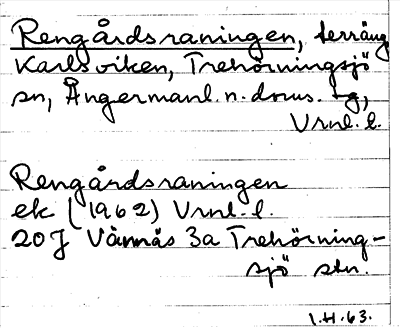 Rengårdsraningen, terräng
Karlsviken, Trehörningsjö
sn, Ångermanl. n. doms. tg,
Vrnl. l.
Rengårdsraningen
ek (1962) Vrnl. l.
20J Vännäs 3a Trehörning-
sjö stn.
I.H. 63.